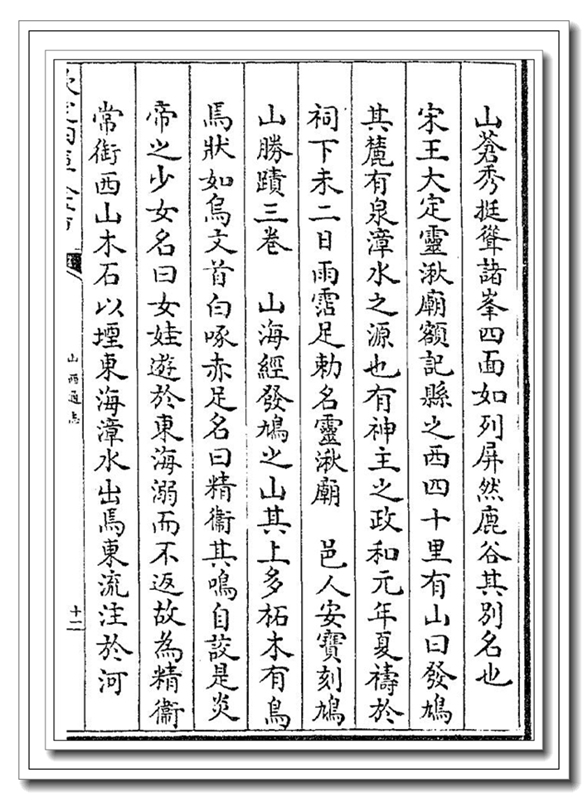 山蒼秀挺聳諸峯四面如列屏然鹿谷其別名也
宋王大定靈湫廟額記縣之西四十里有山曰發鳩
其麓有泉漳水之源也有神主之政和元年夏禱於
祠下未二日雨霑足勅名靈湫廟　邑人安寶刻鳩
山勝蹟三卷　山海經發鳩之山其上多柘木有鳥
焉狀如烏文首白喙赤足名曰精衛其鳴自詨是炎
帝之少女名曰女娃遊於東海溺而不返故為精衛
常銜西山木石以堙東海漳水出焉東流注於河
山西通志
十二